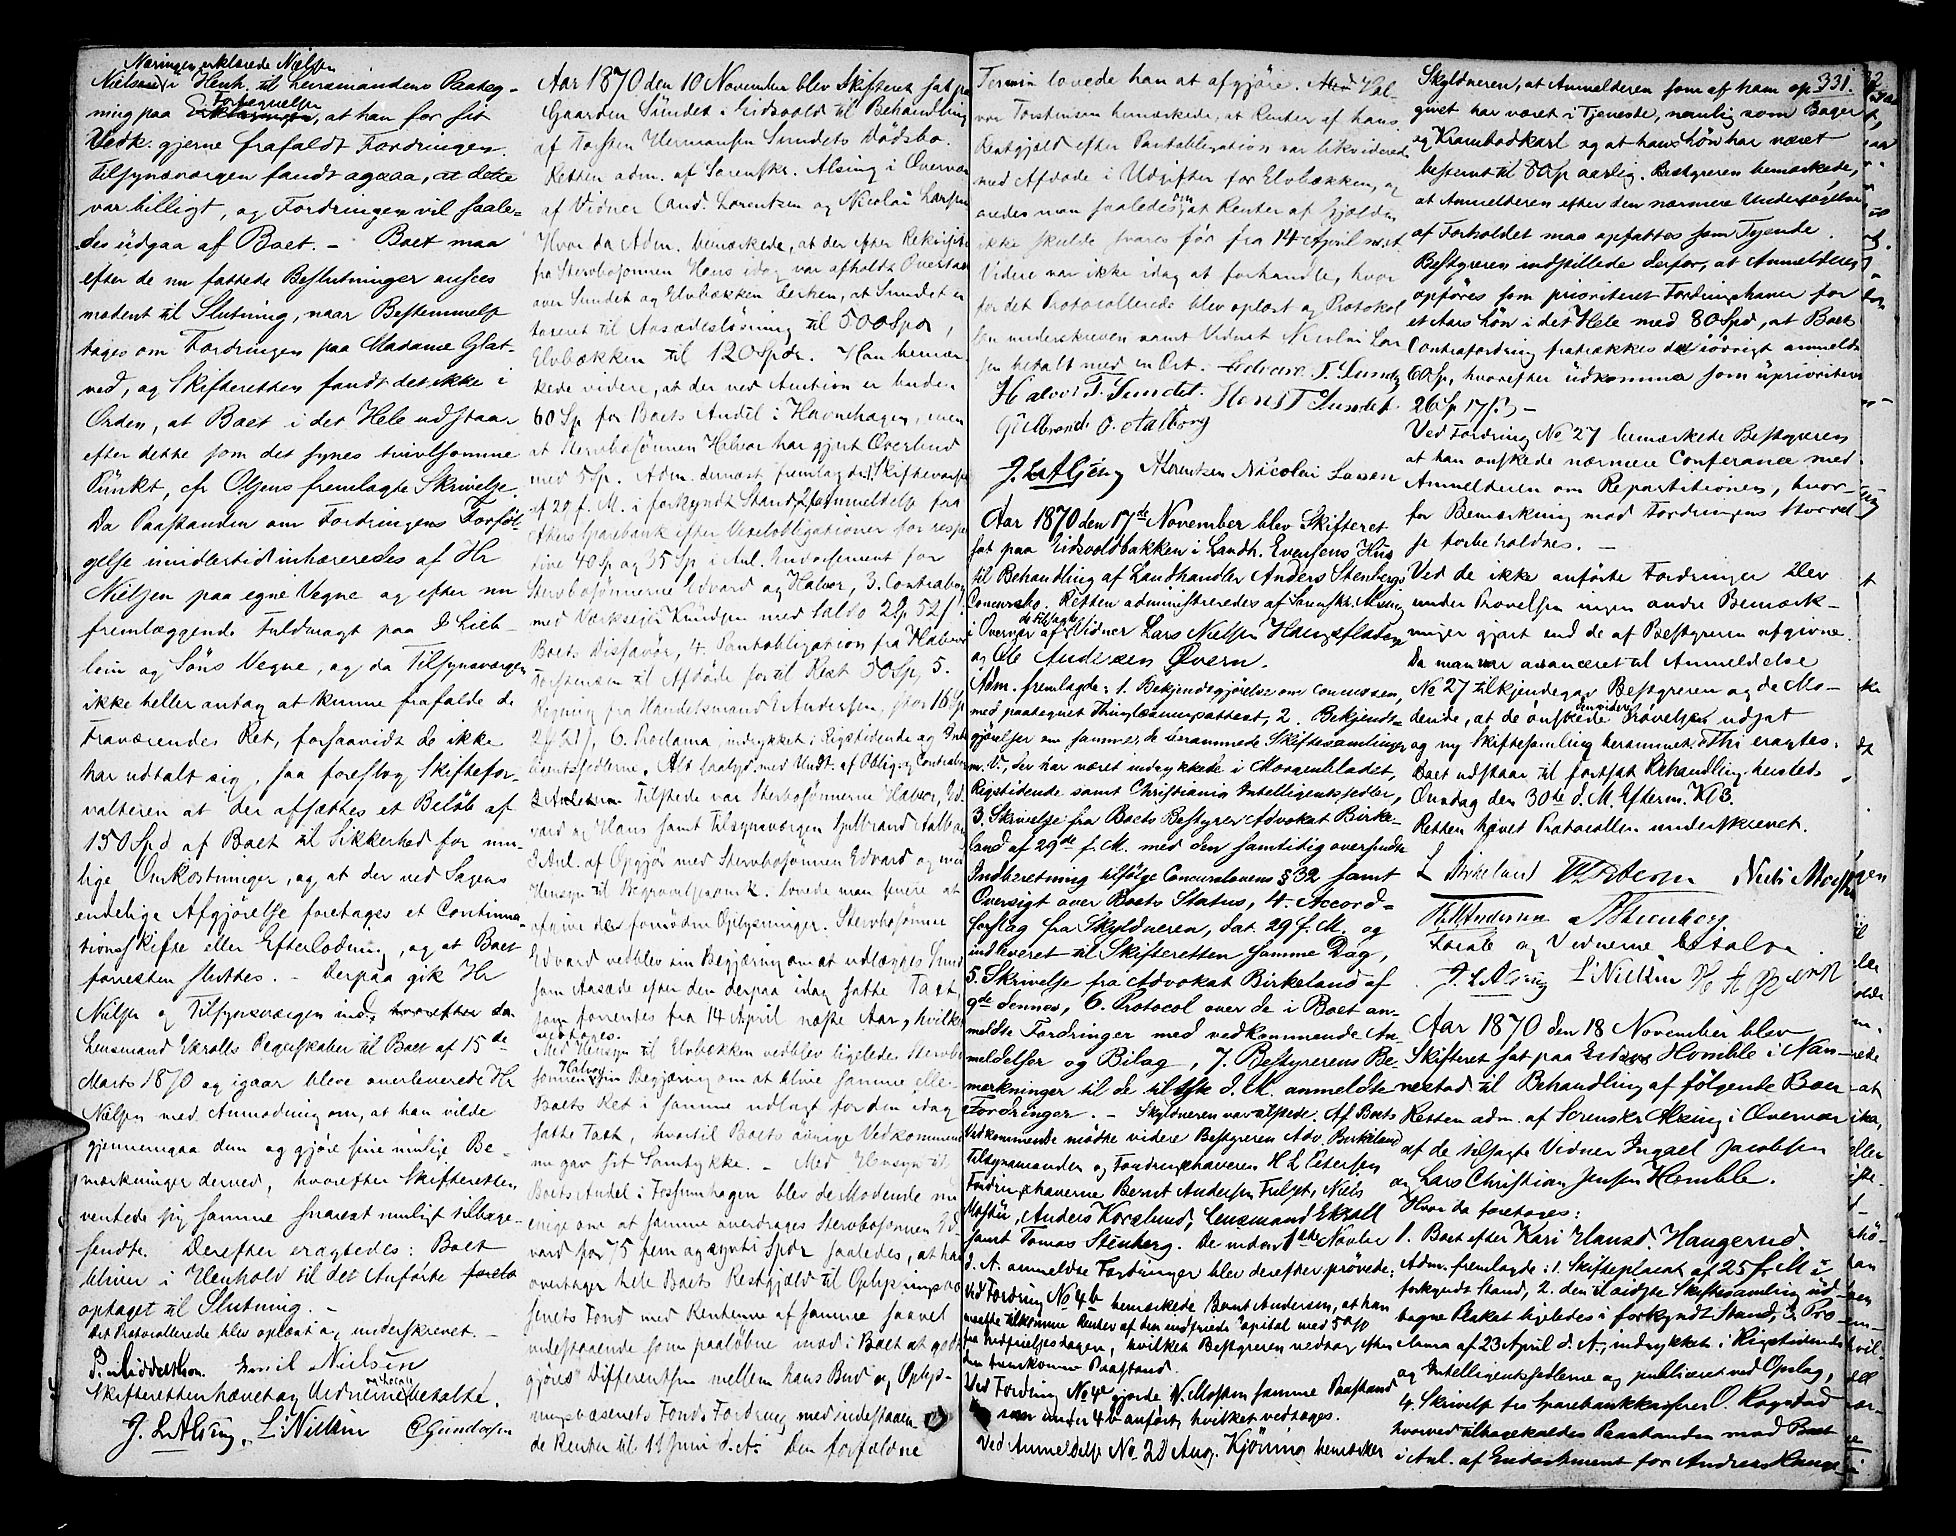 Næringen erklærede Nielsen
Nielsen i Henh. til Lensmandens Paateg-
ning paa Fortegnelsen, at han for sit
Vedk. gjerne frafaldt Fordringen.
Tilsynsværgen fandt ogsaa, at dette
var billigt, og Fordringen vil saale-
des udgaa af Boet. – Boet maa
efter de nu fattede Beslutninger ansees
modent til Slutning, naar Bestemmelse
tages om Fordringen paa Madame Glat-
ved, og Skifteretten fandt det ikke i
Orden, at Boet i det Hele udstaar
efter dette som det synes tvivlsomme
Punkt, cfr Olsens fremlagte Skrivelse.
Da Paastanden om Fordringens Forføl-
gelse imidlertid inhæreredes af Hr
Nielsen paa egne Vegne og efter nu
fremlæggende Fuldmagt paa
og Søns Vegne, og da Tilsynsværgen
ikke heller antog at kunne frafalde de
Fraværendes Ret, forsaavidt de ikke
har udtalt sig, saa foreslog Skiftefor-
valteren at der afsættes et Beløb af
150 Spd af Boet til Sikkerhed for mu-
lige Omkostninger, og at der ved Sagens
endelige Afgjørelse foretages et Continua-
tionsskifte eller Efterlodning, og at Boet
forresten sluttes. – Derpaa gik Hr
Nielsen og Tilsynsværgen ind, hvorefter da
Lensmand Ekrolls Regnskaber til Boet af 15de
Marts 1870 og igaar bleve overleverede Hr
Nielsen med Anmodning om, at han vilde
gjennemgaa dem og gjøre sine mulige Be-
mærkninger derved, hvorefter Skifteretten
ventede sig samme snarest muligt tilbage-
sendte. Derefter eragtedes: Boet
bliver i Henhold til det Anførte
optaget til Slutning. –
Det Protocollerede blev oplæst og underskrevet. –
P. Middelthon. Emil Nielsen
Skifteretten hævet og Vidnerne betalte.
J. L. Alsing. L. Nielsen C Gundersen
Aar 1870 den 10 November blev Skifteret sat paa
Gaarden Sundet i Eidsvold til Behandling
af Torsten Hermansen Sundets Dødsbo.
Retten adm. af Sorenskr. Alsing i Overvær
af Vidner Cand. Lorentzen og Nicolai Larsen
Hvor da Adm. bemærkede, at der efter Rekvisition
fra Stervbosønnen Hans idag var afholdt Overtaxt
over Sundet og Elvbækken derhen, at Sundet er
taxeret til Aasædesløsning til 500 Spdr,
Elvbækken til 120 Spdr. Han bemær-
kede videre, at der ved Auction er buden
60 Sp for Boets Andel i Havnehagen, men
at Stervbosønnen Halvor har gjort Overbud
med 5 Sp. Adm. dernæst fremlagde: 1. Skiftevarsel
af 29 f. M. i forkyndt Stand, 2. Anmeldelse fra
Akers Sparebank efter Vexelobligationer for respec-
tive 40 Sp og 35 Sp i Anl. Endossement for
Stervbosønnerne Edvard og Halvor, 3. Contrabog
med Værkseier Knudsen med Saldo 2 Sp 52 s i
Boets Disfavør, 4. Pantobligation fra Halvor
Torstensen til Afdøde for til Rest 50 Sp, 5.
Regning fra Handelsmand E Andersen, stor 16 Sp
2 21 s, 6. Proclama, indrykket i Rigstidende og Intel-
ligentssedlerne. Alt saalyd. med Undt. af Oblig. og Contrabog
Tilstede var Stervbosønnerne Halvor, Ed-
vard og Hans samt Tilsynsværgen Gulbrand Aalborg
I Anl. af Opgjør med Stervbosønnen Edvard og med
Hensyn til Begravelsesomk. lovede man senere at
afgive de fornødne Oplysninger. Stervbosønne
Edvard vedblev sin Begjæring om at udlægges Sundet
som Aasæde efter den derpaa idag satte Taxt,
som forrentes fra 14 April næste Aar, hvilket
vedtages.
Med Hensyn til Elvbækken vedblev ligeledes Stervbo-
sønnen Halvor sin Begjæring om at blive samme eller
Boets Ret i samme udlagt for den idag
satte Taxt, hvortil Boets øvrige Vedkommende
nu gav sit Samtykke. – Med Hensyn til
Boets Andel i Fossumhagen blev de Mødende nu
enige om at samme overdrages Stervbosønnen Ed-
vard for 75 fem og sytti Spdr saaledes, at han
overtager hele Boets Restgjæld til Oplysningsvæ-
senets Fond med Renterne af samme saavel
indestaaende som paaløbne mod i Boet at godt-
gjøres Differentsen mellem hans Bud og Oplys-
ningsvæsenets Fonds Fordring med indestaaen-
de Renter til 11 Juni d. A. Den forfaldne
Termin lovede han at afgjøre. Hal-
vor Torstensen bemærkede, at Renter af hans
Restgjæld efter Pantobligation var likviderede
med Afdøde i Udgifter for Elvbækken, og
enedes man saaledes om, at Renter af Gjælden
ikke skulde svares før fra 14 April næst
Videre var ikke idag at forhandle, hvor-
for det Protocollerede blev oplæst og Protokol-
len underskreven samt Vidnet Nicolai Lar-
sen betalt med en Ort. Edvard T. Sundet
Halvor T. Sundet. Hans T Sundet.
Gulbrand O. Aalborg
J. L. Alsing Lorentzen Nicolai Larsen
Aar 1870 den 17de November blev Skifteret
sat paa Eidsvoldbakken i Landh. Evensens Hus
til Behandling af Landhandler Anders Stenbergs
Concursbo. Retten administreredes af Sorenskr. Alsing
i Overvær af Vidner Lars Nielsen Haugsfladen
og Ole Andersen Øvern.
Adm. fremlagde: 1. Bekjendtgjørelse om Concursen,
med paategnet Thinglæsningsattest, 2. Bekjendt-
gjørelser om samme, de berammede Skiftesamlinger
m. V., der har været indrykkede i Morgenbladet,
Rigstidende samt Christiania Intelligentssedler,
3. Skrivelse fra Boets Bestyrer Advokat Birke-
land af 29de f. M. med den samtidig oversendte
Indberetning tilfølge Concurslovens § 32 samt
Oversigt over Boets Status, 4. Accord-
forslag fra Skyldneren, dat. 29 f. M. og
indleveret til Skifteretten samme Dag,
5. Skrivelse fra Advokat Birkeland af
9de dennes, 6. Protocol over de i Boet an-
meldte Fordringer med vedkommende An-
meldelser og Bilag, 7. Bestyrerens Be-
mærkninger til de til d. M. anmeldte
Fordringer. – Skyldneren var tilstede. Af Boets
Vedkommende mødte videre Bestyreren Adv. Birkeland
Tilsynsmanden og Fordringshaveren H L Petersen
Fordringshaverne Bernt Andersen Fulset, Niels
Mostue, Anders Korslund, Lensmand Ekroll
samt Tomas Stenberg. De inden 1ste Novber
d. A. anmeldte Fordringer blev derefter prøvede:
Ved Fordring No 4b bemærkede Bernt Andersen, at han
maatte tilkomme Renter af den indfriede Capital med 5 %
fra Indfrielsesdagen, hvilket Bestyreren vedtog efter
den fremkomne Paastand.
Ved Fordring No 4c gjorde N. Mostuen samme Paastand
som under 4b anført, hvilket vedtages.
Ved Anmeldelse No 20 Aug. Kjøning bemærker
331.
Skyldneren, at Anmelderen som af ham op-
givet har været i Tjeneste, nemlig som Bager
og Krambodkarl og at hans Løn har været
bestemt til 80 Sp aarlig. Bestyreren bemærkede,
at Anmelderen efter den nærmere Undersøgelse
af Forholdet maa opfattes som Tyende.
Bestyreren indstillede derfor, at Anmelderen
opføres som prioriteret Fordringshaver for
et Aars Løn i det Hele med 80 Spd, at Boets
Contrafordring fratrækkes de iøvrigt anmeldte
60 Sp, hvorefter udkommer som uprioriteret
26 Sp 17 s. –
Ved Fordring No 27 bemærkede Bestyreren
at han ønskede nærmere Conferance med
Anmelderen om Repartitionen, hvor-
for Bemærkning mod Fordringens Størrel-
se forbeholdnes. –
Ved de ikke anførte Fordringer blev
under Prøvelsen ingen andre Bemærk-
ninger gjort end de af Bestyreren afgivne.
Da man var avanceret til Anmeldelse
No 27 tilkjendegav Bestyreren og de Mø-
dende, at de ønskede den videre Prøvelse udsat
og ny Skiftesamling berammet. Thi eragtes:
Boet udstaar til fortsat Behandling hersteds
Onsdag den 30te d. M. Efterm. Kl 3.
Retten hævet Protocollen underskrevet.
L Birkeland H L Petersen Niels Mostue
B. Andersen A Stenberg
Locale og Vidnerne betalte
J. L. Alsing L. Nielsen
Aar 1870 den 18 November blev
Skifteret sat paa Homble i Nan-
nestad til Behandling af følgende Boer
Retten adm. af Sorenskr Alsing i Overvær
af de tilsagte Vidner Ingael Jacobsen
og Lars Christian Jensen Homble.
Hvor da foretages:
1. Boet efter Kari Hansd. Haugerud.
Adm. fremlagde: 1. Skifteplacat af 25 f. M. i
forkyndt Stand, 2. den til sidste Skiftesamling ud-
tagne Placat ligeledes i forkyndt Stand, 3. Pro-
clama af 23 April d. A., indrykket i Rigstidende
og Intelligentssedlerne og publiceret ved Opslag,
4. Skrivelse fra Sparebankkasserer O. Ragstad
hvorved tilbagekaldes Paastanden mod Boet
i Anl. af Endossement for Andreas Hans